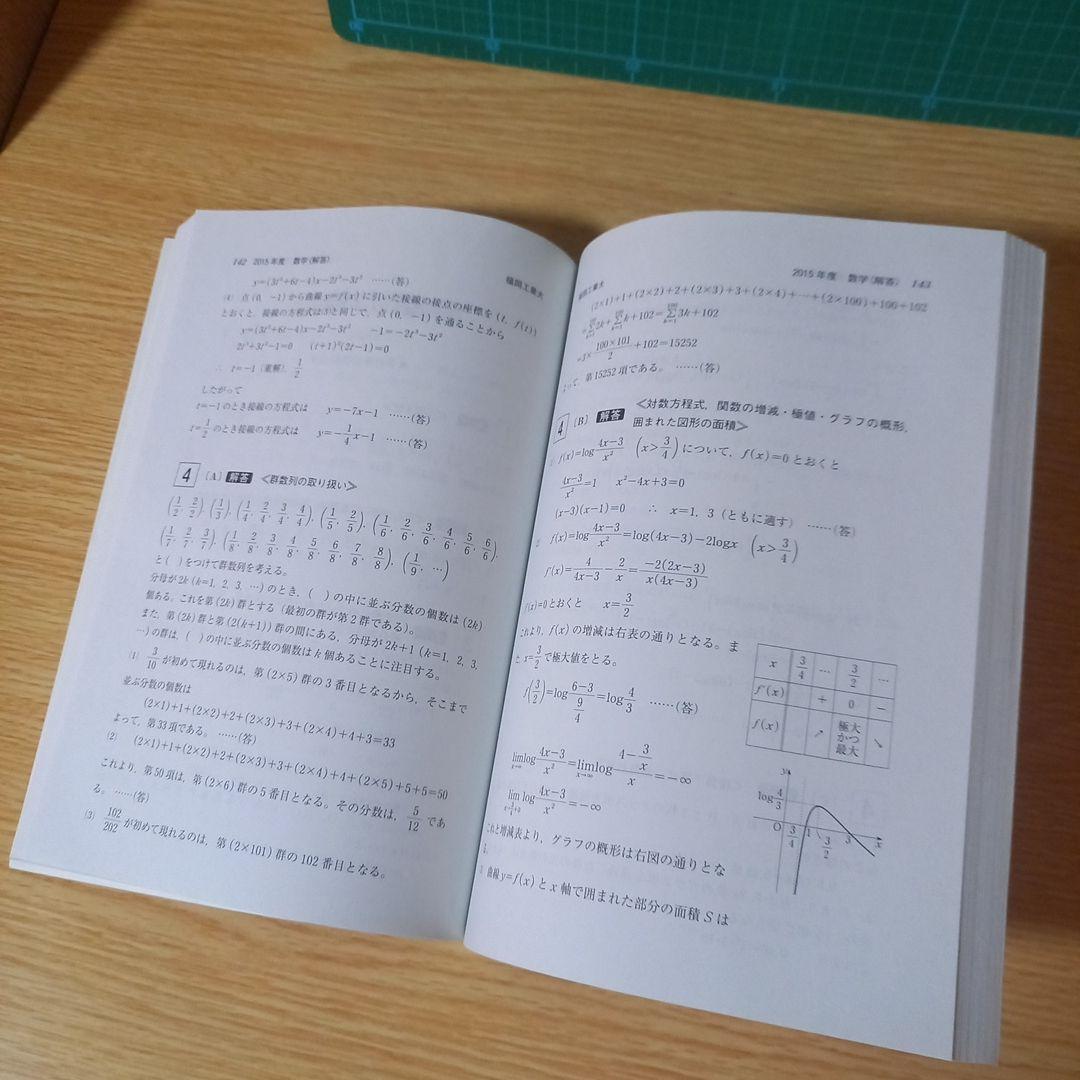 142 2015年度 数学(解答) 福岡工業大
y=(3t²+6t-4)x-2t³-3t² ……(答)
(4) 点(0, -1)から曲線y=f(x)に引いた接線の接点の座標を(t, f(t))
とおくと，接線の方程式は(3)と同じで，点(0, -1)を通ることから
y=(3t²+6t-4)x-2t³-3t² -1=-2t³-3t²
2t³+3t²-1=0 (t+1)²(2t-1)=0
∴ t=-1 (重解), 1/2
したがって
t=-1のとき接線の方程式は y=-7x-1 ……(答)
t=1/2のとき接線の方程式は y=-1/4x-1 ……(答)
4 〔A〕 解答 ≪群数列の取り扱い≫
(1/2, 2/2), (1/3), (1/4, 2/4, 3/4, 4/4), (1/5, 2/5), (1/6, 2/6, 3/6, 4/6, 5/6, 6/6),
(1/7, 2/7, 3/7), (1/8, 2/8, 3/8, 4/8, 5/8, 6/8, 7/8, 8/8), (1/9, …)
と( )をつけて群数列を考える。
分母が2k (k=1, 2, 3, …)のとき，( )の中に並ぶ分数の個数は(2k)
個ある。これを第(2k)群とする（最初の群が第2群である）。
また，第(2k)群と第(2(k+1))群の間にある，分母が2k+1 (k=1, 2, 3,
…)の群は，( )の中に並ぶ分数の個数はk個あることに注目する。
(1) 3/10が初めて現れるのは，第(2×5)群の3番目となるから，そこまで
並ぶ分数の個数は
(2×1)+1+(2×2)+2+(2×3)+3+(2×4)+4+3=33
よって，第33項である。……(答)
(2) (2×1)+1+(2×2)+2+(2×3)+3+(2×4)+4+(2×5)+5+5=50
これより，第50項は，第(2×6)群の5番目となる。その分数は，5/12であ
る。……(答)
(3) 102/202が初めて現れるのは，第(2×101)群の102番目となる。
福岡工業大 2015年度 数学(解答) 143
(2×1)+1+(2×2)+2+(2×3)+3+(2×4)+…+(2×100)+100+102
=Σ[k=1→100]2k+Σ[k=1→100]k+102=Σ[k=1→100]3k+102
=3×100×101/2+102=15252
よって，第15252項である。……(答)
4 〔B〕 解答 ≪対数方程式，関数の増減・極値・グラフの概形，
囲まれた図形の面積≫
f(x)=log (4x-3)/x² (x>3/4)について，f(x)=0とおくと
(4x-3)/x²=1 x²-4x+3=0
(x-3)(x-1)=0 ∴ x=1, 3（ともに適す） ……(答)
f(x)=log (4x-3)/x²=log(4x-3)-2logx (x>3/4)
f'(x)=4/(4x-3)-2/x=-2(2x-3)/x(4x-3)
f'(x)=0とおくと x=3/2
これより，f(x)の増減は右表の通りとなる。ま
た x=3/2で極大値をとる。
f(3/2)=log (6-3)/(9/4)=log 4/3 ……(答)
x 3/4 … 3/2 …
f'(x) + 0 −
f(x) ↗ 極大かつ最大 ↘
lim[x→∞] log (4x-3)/x²=lim[x→∞] log (4-3/x)/x=-∞
lim[x→3/4+0] log (4x-3)/x²=-∞
これと増減表より，グラフの概形は右図の通りとな
る。
y
log 4/3
O 3/4 1 3/2 3 x
曲線y=f(x)とx軸で囲まれた部分の面積Sは